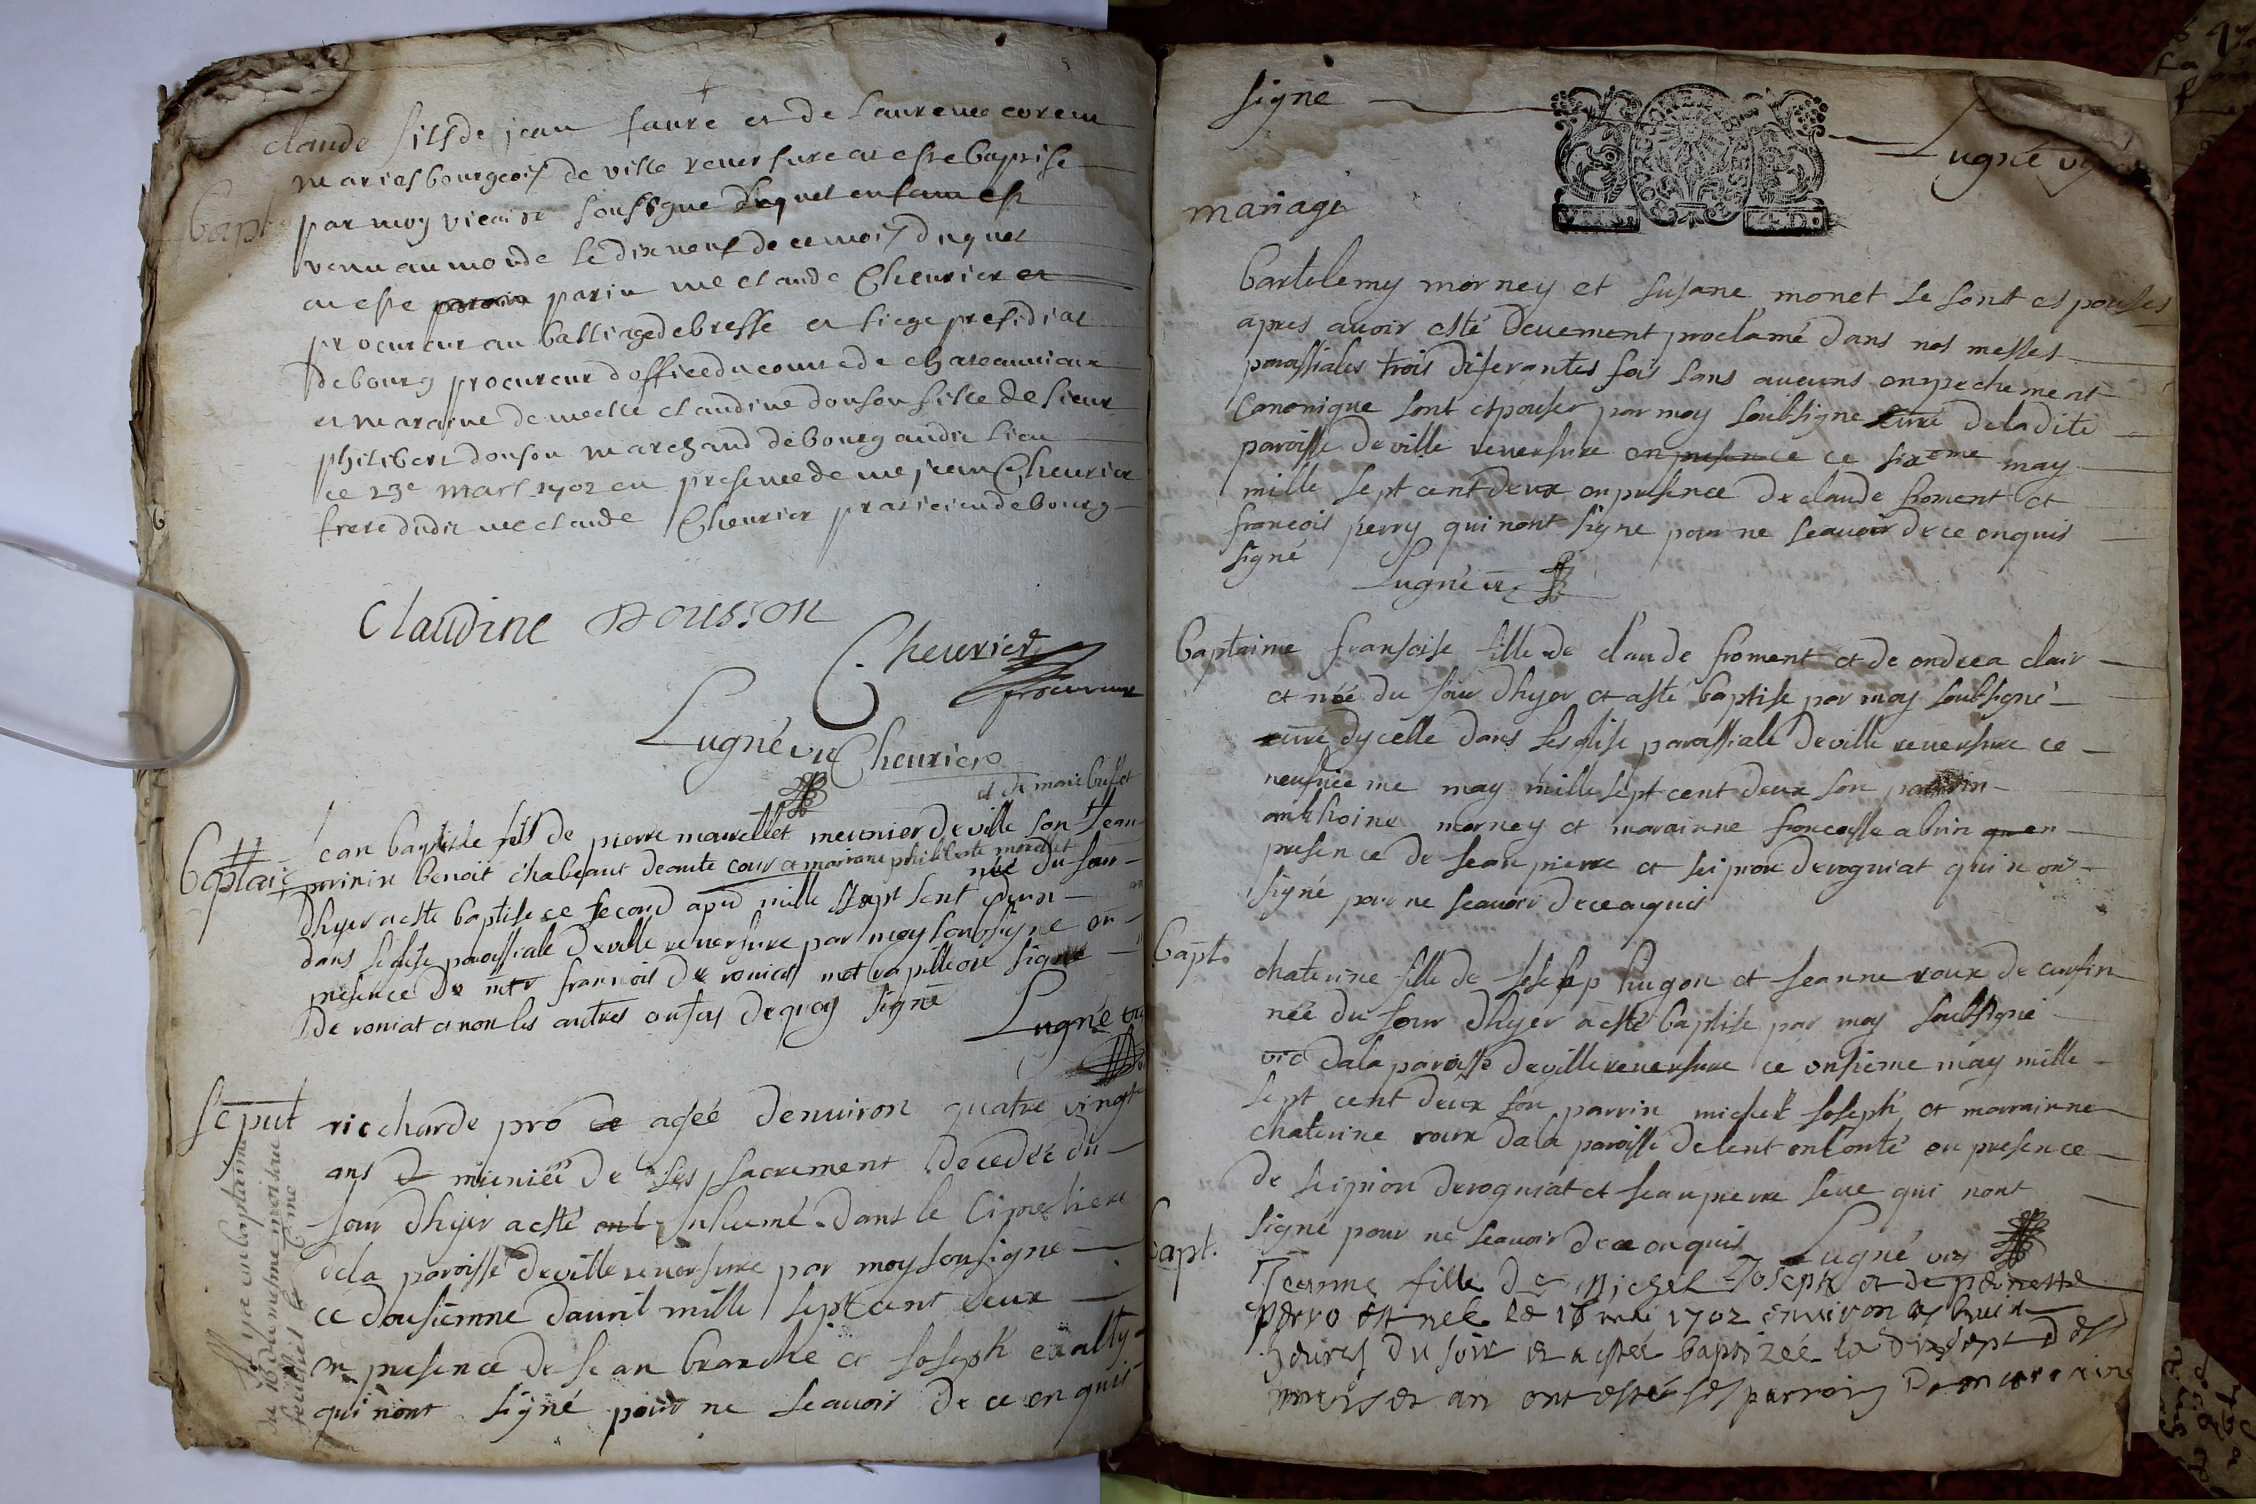 claude fils de jean faure et de laurence corem
maries bourgeois de ville reuersure at este baptise
Bapt
par moy vicaire soussigne duquel enfant est
venu au monde le dix neuf de ce mois duquel
at este parin me claude Cheurier et
procureur au balliage de bresse et siege presidial
de bourg procureur doffice du comte de chateauuieux
et maraine demelle claudine douson fille de sieur
philibert douson marchand de bourg audit lieu
ce 23e mars 1702 en presence de me jean Cheurier
frere dudit me claude Cheurier praticien de bourg
Claudine Dousson
Cheurier
procureur
Lugné vic Cheurier
et de marie buffet
Baptai
Jean baptiste fils de pierre mourellet meunier de ville son Jean
parinin benoit chabeaut de aute cour et mariane philiberte morellet
née du jour
dhyer a este baptise ce second apuril mille sept sent deux
dans leglise paroissiale de ville reuersure par moy soubsigne en
presence de mtr francois de roniat met rapillion signe
de roniat et non les autres enfas de quoy signé
Lugné vic
Sepult
riccharde pro agée denuiron quatre vingt
ans et muniée de ses sacrement decedee du
jour dhyer a esté Inhumé dans le Cimetiere
dela paroisse de ville reuersure par moy sousigne
ce dousiemne dauril mille sept cent deux
en presence de Jean branche et Joseph
qui nont signé pour ne scauoir de ce enquis
Il y a un baptaime
du 16 du mesme mois sur
feuillet le
signe
Lugné vic
mariage
bartelemy morney et susane monet se sont espouses
apres auoir esté deuement proclamé dans nos messes
paroissiales trois diferantes fois sans aucuns enpechement
Canonique sont espouser par moy soubsigne curé deladite
paroisse de ville reuersure en presence ce sixeme may
mille sept cent deux en presence de claude froment et
francois perry qui nont signe pour ne scauoir de ce enquis
signé
Lugné vic
Baptaime fransoise fille de claude froment et de andrea clair
et née du jour dhyer et a esté baptise par moy soubsigné
curé dycelle dans lesglise paroissiale de ville reuersure ce
neufuieme may mille sept cent deux son parrin
anthoine morney et marainne francoise abrin en
presence de Jean pierre et scipion derogniat qui n ont
signé pour ne scauoir de ce enquis
Bapt.
chaterine fille de Joseph hugon et Jeanne roux de cuisin
née du jour dhyer a esté baptise par moy soubsigné
vic dela paroisse de ville reuersure ce onsieme may mille
sept cent deux son parrin michel Joseph et marrainne
chaterine roux dela paroisse de lent en conté en presence
de scipion derogniat et Jean pierre seue qui nont
signé pour ne scauoir de ce enquis Lugné vic
bapt.
Jeanne fille de Michel Joseph et de pernette
perro est nee le 16 mai 1702 enuiron les huit
heures du soir et a estee baptizée le dixsept des
mois et an ont esté ses parrain